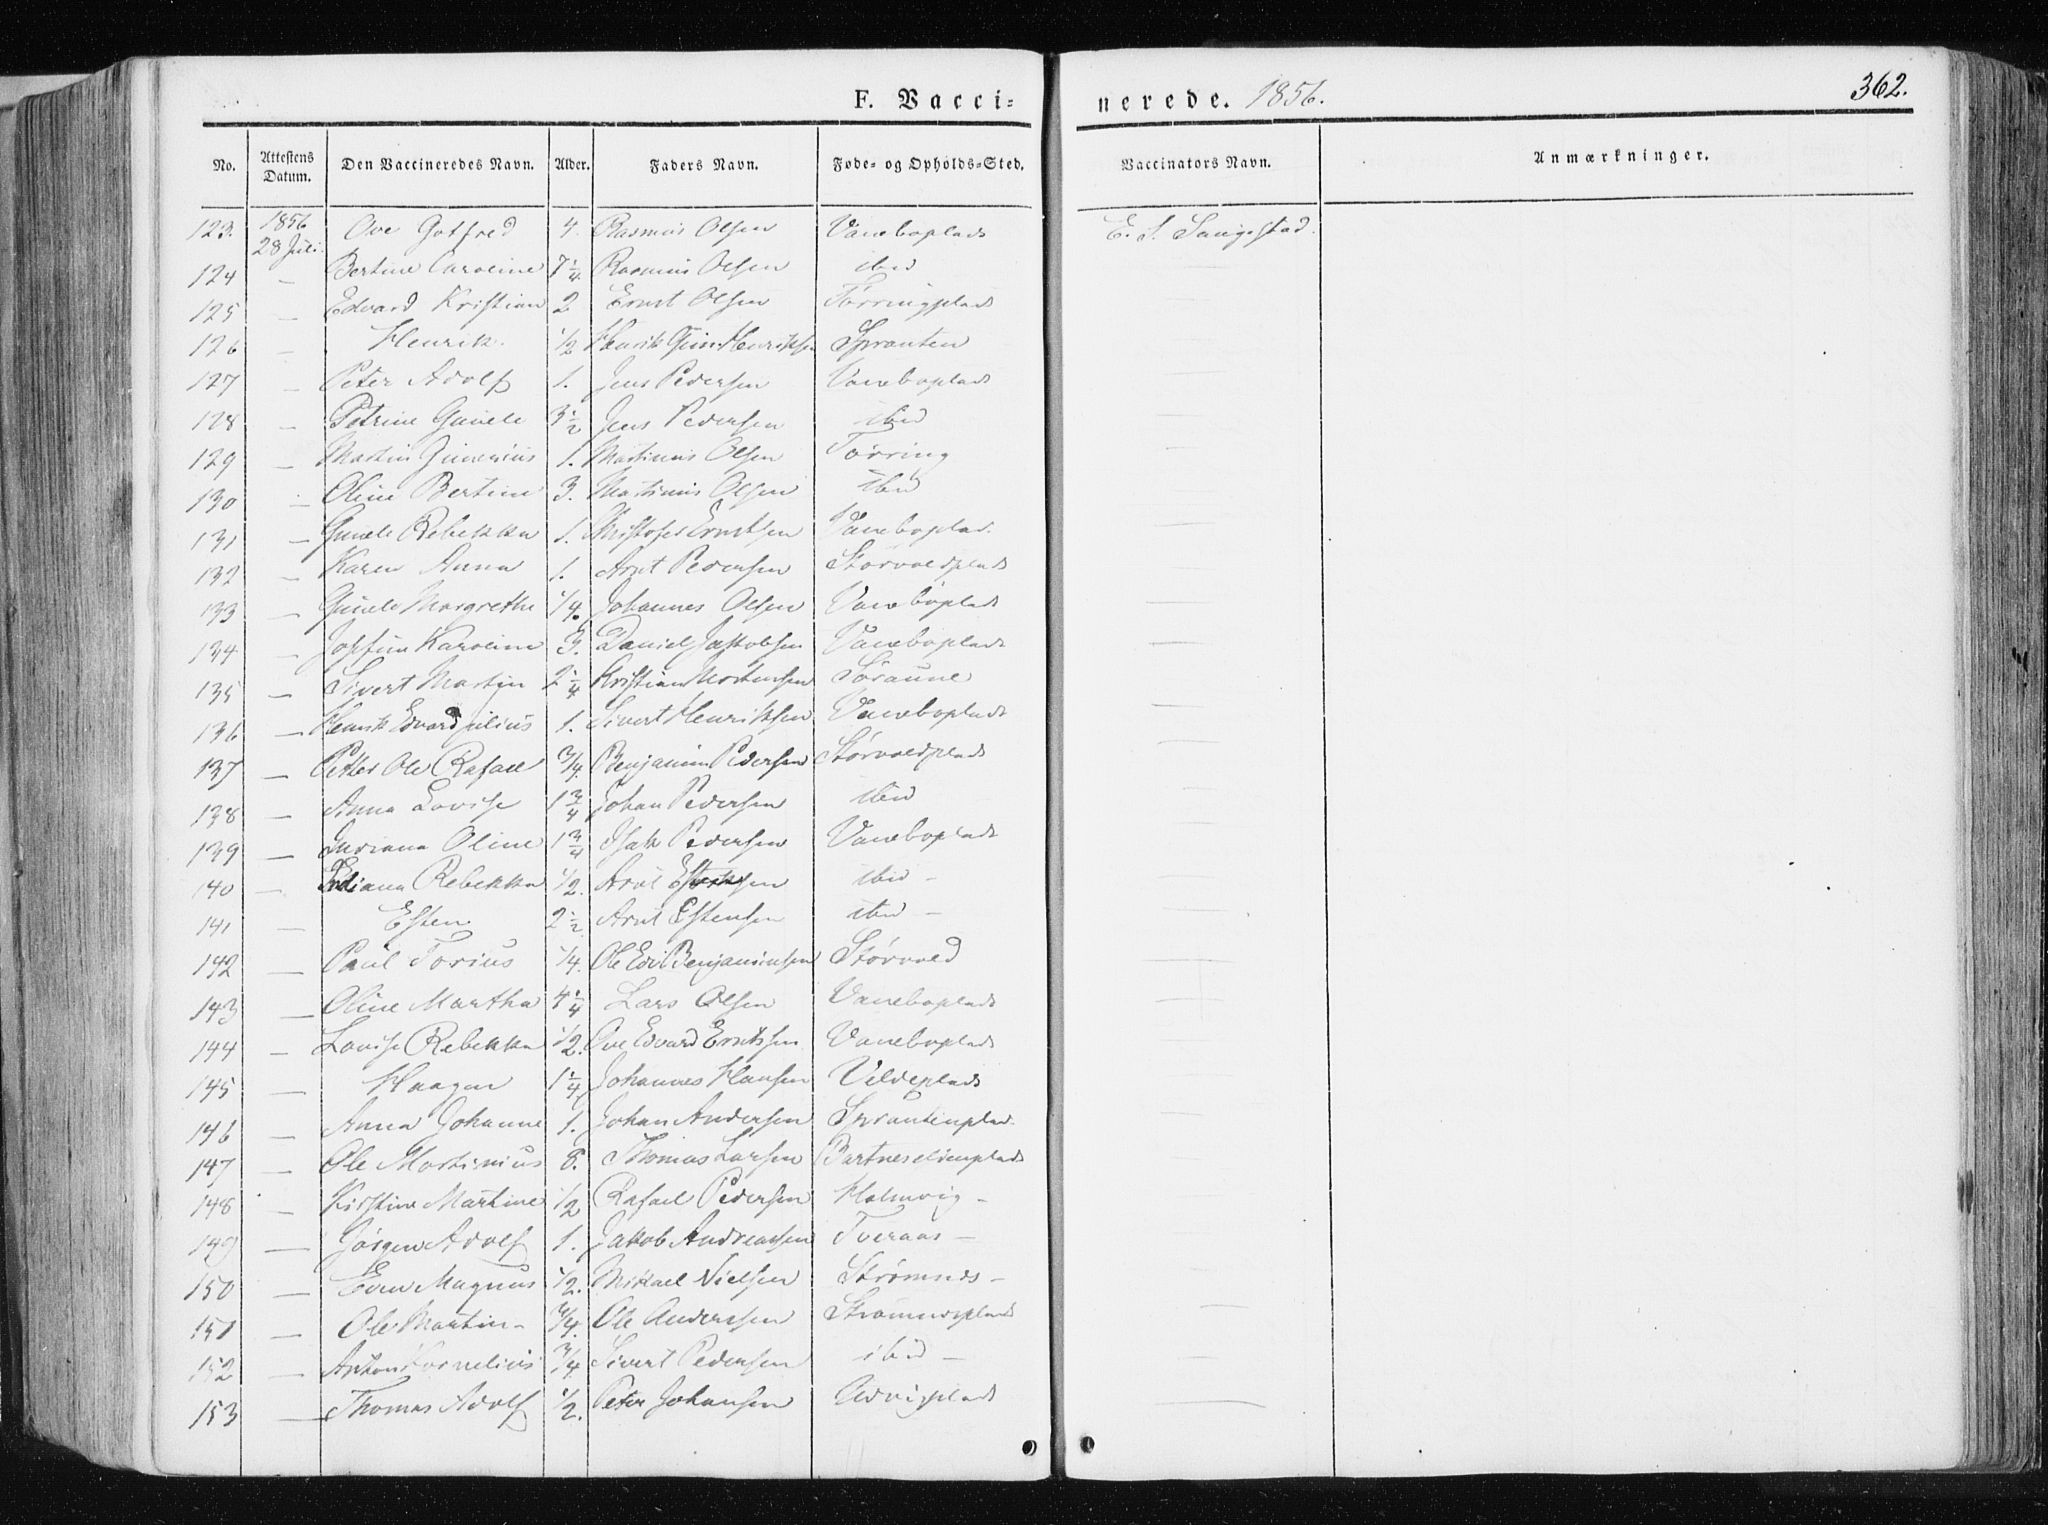 F. Vacci-
nerede. 1856.
362.
No. Attestens Datum. Den Vaccineredes Navn. Alder. Faders Navn. Føde- og Opholds-Sted. Vaccinators Navn. Anmærkninger.
123. 1856 28 Juli Ove Gotfred 4. Rasmus Olsen Vaneboplads E. S. Saugestad.
124 — Bertine Caroline 7 1/4 Rasmus Olsen ibid
125 — Edvard Kristian 2 Ernst Olsen Tørringplads
126 — Henrik. 1/2 Henrik Henriksen Sprauten
127 — Peter Adolf 1. Jens Pedersen Vaneboplads
128 — Petrine Gunele 3 1/2 Jens Pedersen ibid
129 — Martin 1. Martinus Olsen Tørring
130 — Oline Bertine 3. Martinus Olsen ibid
131 — Gunele Rebekka 1. Kristofer Erntsen Vaneboplad.
132 — Karen Anna 1. Arnt Pedersen Størvoldplads
133 — Gunele Margrethe 1/4. Johannes Olsen Vaneboplads
134 — Josefine Karoline 3. Daniel Jakobsen Vaneboplads
135 — Sivert Martin 2 1/4 Kristian Mortensen Søraune
136 — Henrik Edvard Julius 1. Sivert Henriksen Vaneboplads
137 — Petter Ole Rafael 3/4. Benjamin Pedersen Størvoldplads
138 — Anna Lovise 1 3/4 Johan Pedersen ibid
139 — Indiana Oline 1 3/4 Isak Pedersen Vaneboplads
140 — Rebekka 1/2. Arnt ibid —
141 — Esten 2 1/2. Arnt Estensen ibid —
142 — Paul Torius 1/4. Ole Edv Benjaminsen Størvold
143 — Oline Martha 4 1/4 Lars Olsen Vaneboplads
144 — Lovise Rebekka 1/2. Ove Edvard Erntsen Vaneboplads
145 — Haagen 1 1/4 Johannes Hansen Veldeplads
146 — Anna Johanne 1. Johan Andersen Sprautenplad.
147 — Ole Martinius 8. Thomas Larsen Bartneseidenplads
148 — Kirstine Martine 1/2 Rafael Pedersen Holmvig —
149 — Jørgen Adolf 1. Jakob Andreassen Tveraas —
150 — Even Magnus 1/2. Mikael Nielsen Strømnes —
151 — Ole Martin — 3/4. Ole Anderssen Strømnesplads
152 — Anton Kornelius 3/4 Sivert Pedersen ibid —
153 — Thomas Adolf 1/2. Peter Johansen Udvigplads